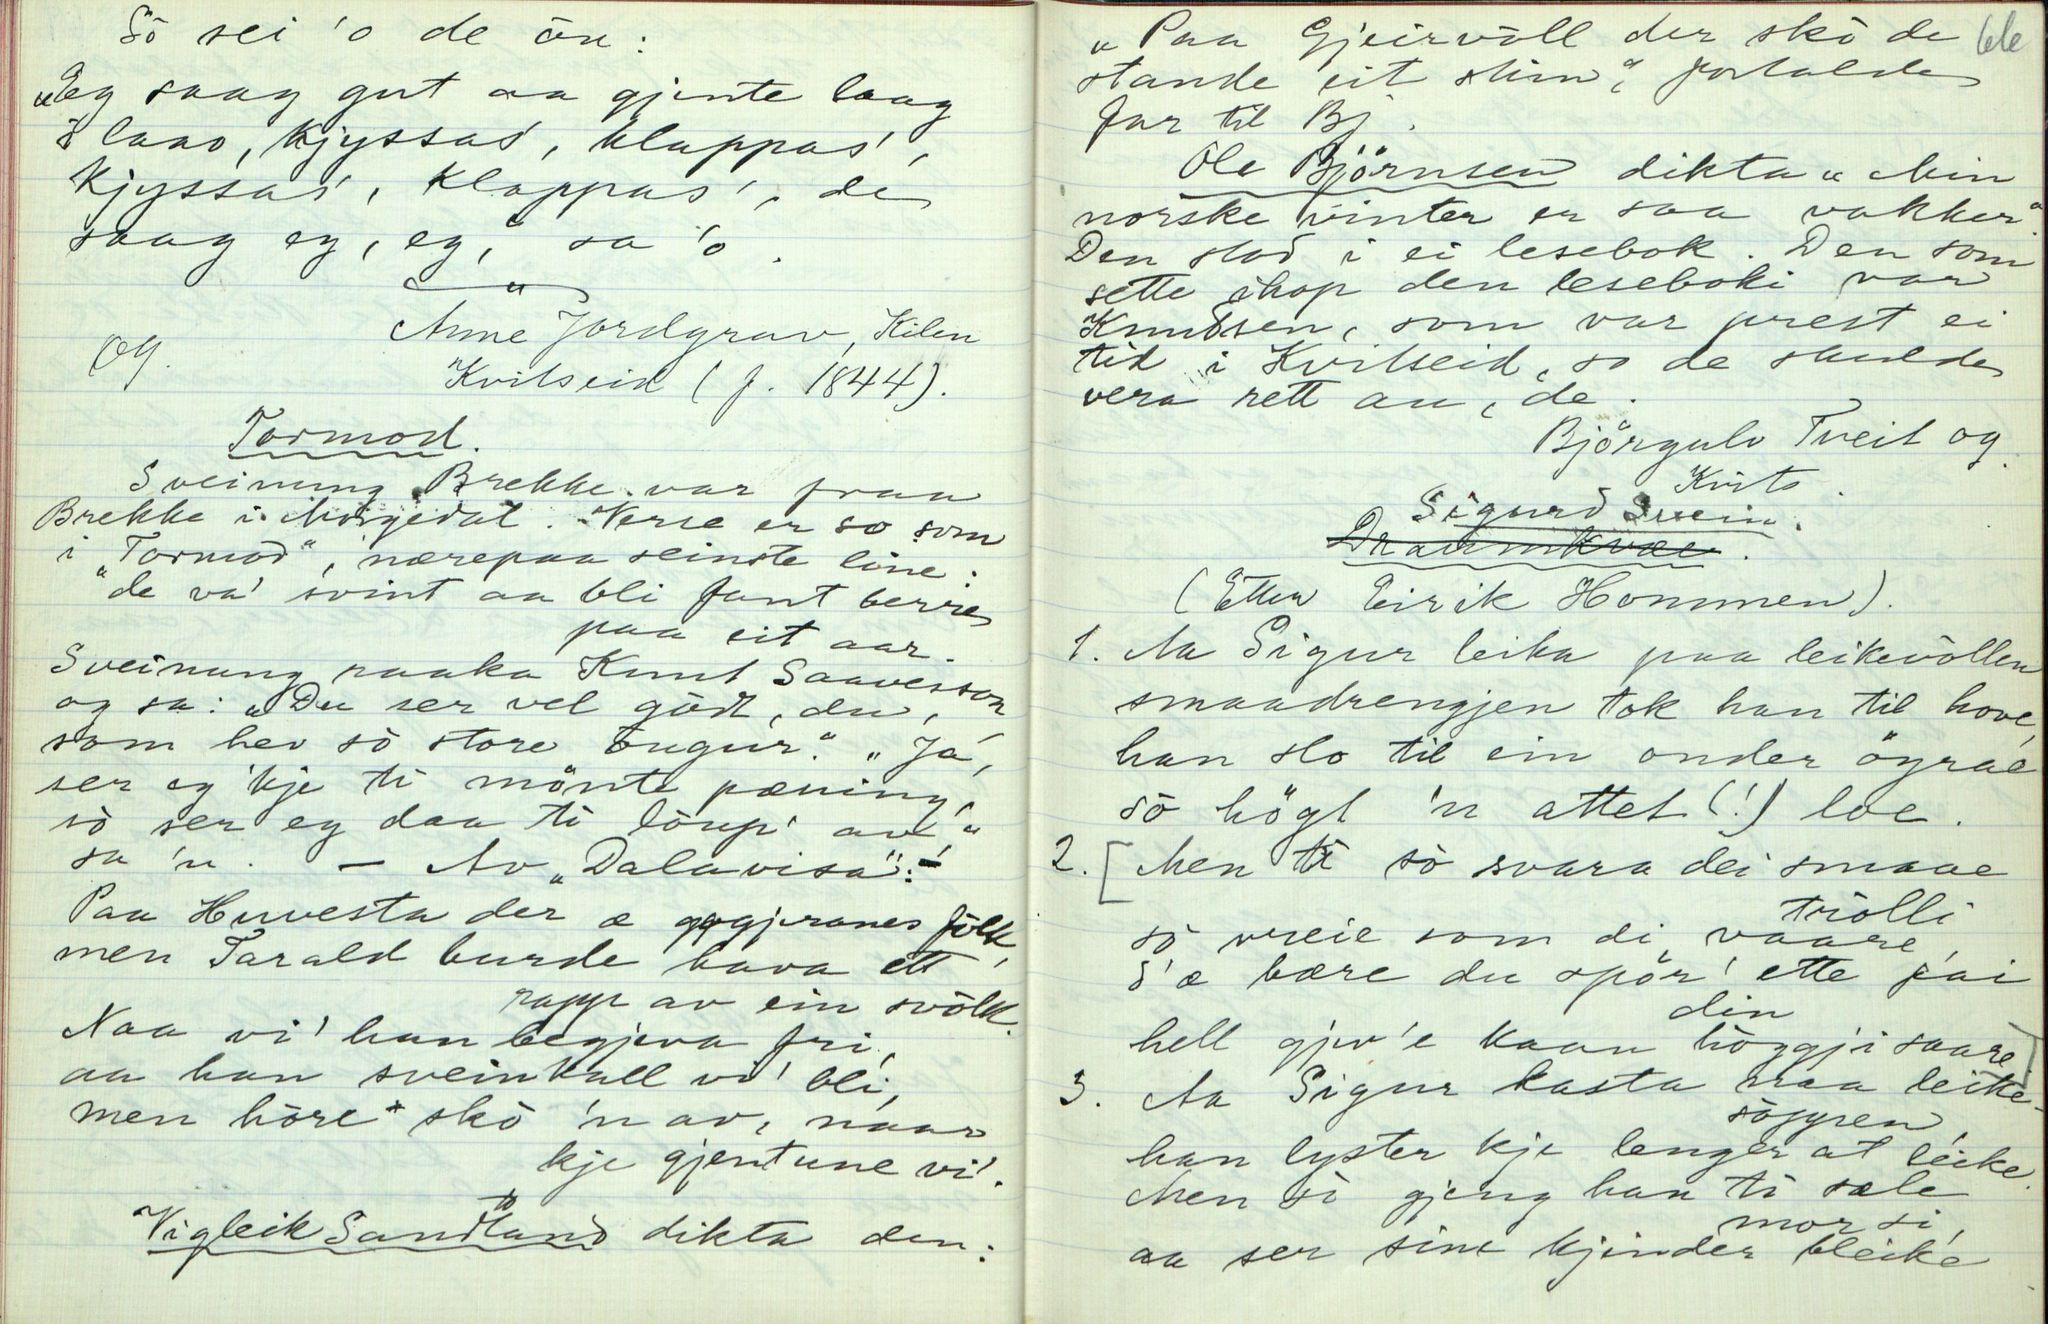 Sò sei 'o de òu:
„Eg saag gut aa gjente laag
i laas, kjyssas', klappas',
kjyssas', klappas', de
saag eg, eg," sa 'o.
Anne Jordgrav, Kilen
og.
Kvitseid (f. 1844).
Tormod.
Sveinung Brekke var fraa
Brekke i Morgjedal. Verse er so som
i „Tormod", nærepaa seinste line:
„de va' svint aa bli fant berre
paa eit aar.
Sveinung raaka Knut Saavesson
og sa: „Du ser vel gödt, du,
som hev sò store òugur." „Ja,
ser eg 'kje ti mönte pæning,
sò ser eg daa ti lòup' av"
sa 'n. — Av „Dalavisa": –
Paa Huvesta der æ gjeranes fòlk,
men Tarald burde hava ett
rapp av ein svòlk.
Naa vi' han begjeva fri,
aa han sveinkall vi' bli,
men höre skò 'n av, naar
kje gjentune vi'.
Vigleik Sandland dikta den:
„Paa Gjeirvòll der skò de
66
stande eit skin", fortalde
far til Bj.
Ole Björnsen dikta „Min
norske vinter er saa vakker."
Den stod i ei lesebok. Den som
sette ihop den leseboki var
Knudsen, som var prest ei
tid i Kvitseid, so de skulde
vera rett au, de.
Björgulv Tveit og
Kvits.
Sigurd Svein.
Draumkvæe.
(Etter Eirik Hommen).
1. Aa Sigur leika paa leikevòllen
smaadrengjen tok han til hove,
han slo til ein onder öyrae
sò högt 'n attet (!) loe.
2. [Men ti sò svara dei smaae
tròlli
sò vreie som di vaare,
d'æ bære du spör' ette fai
din
hell gjev'e kaan höggji saare]
3. Aa Sigur kasta maa leike-
söppen,
han lyster kje lenger at leike.
Men sò gjeng han ti sæle
mor si,
aa ser sine kjinder bleike